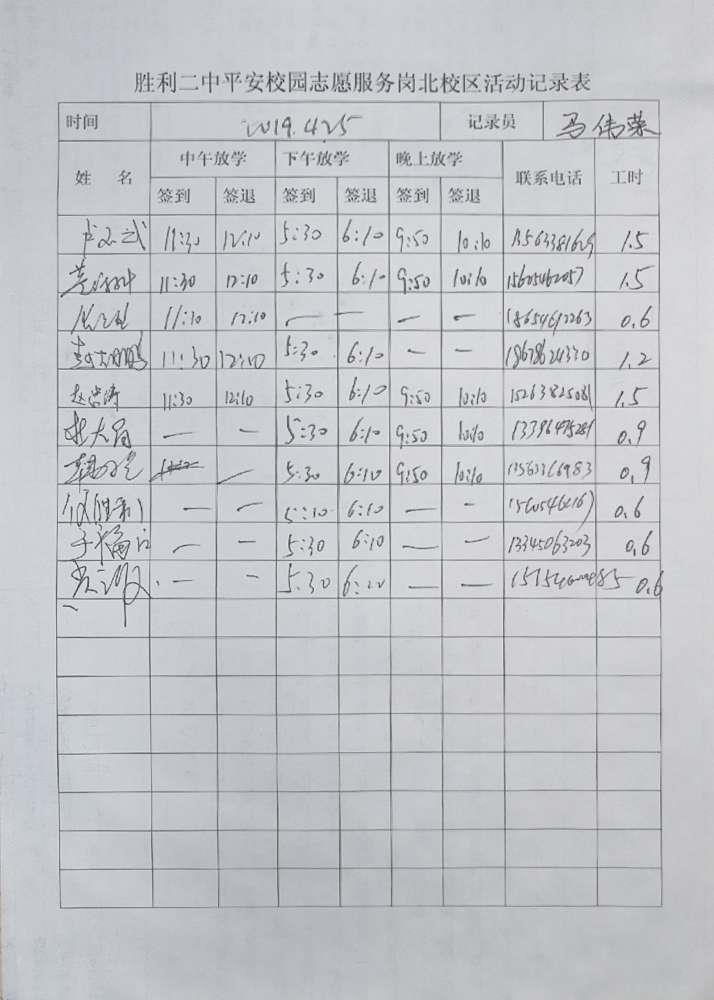 胜利二中平安校园志愿服务岗北校区活动记录表
时间 2019.4.25 记录员 马伟荣
姓 名 中午放学 下午放学 晚上放学 联系电话 工时
签到 签退 签到 签退 签到 签退
11:30 12:10 5:30 6:10 9:50 10:10 1.5
11:30 12:10 5:30 6:10 9:50 10:10 15605462057 1.5
11:30 12:10 — — — — 18654612263 0.6
11:30 12:10 5:30 6:10 — — 18678624330 1.2
赵洪涛 11:30 12:10 5:30 6:10 9:50 10:10 15263825081 1.5
— — 5:30 6:10 9:50 10:10 13396475281 0.9
— 5:30 6:10 9:50 10:10 13563366983 0.9
— — 5:10 6:10 — — 0.6
— — 5:30 6:10 — — 13345063203 0.6
— — 5:30 — — 0.6